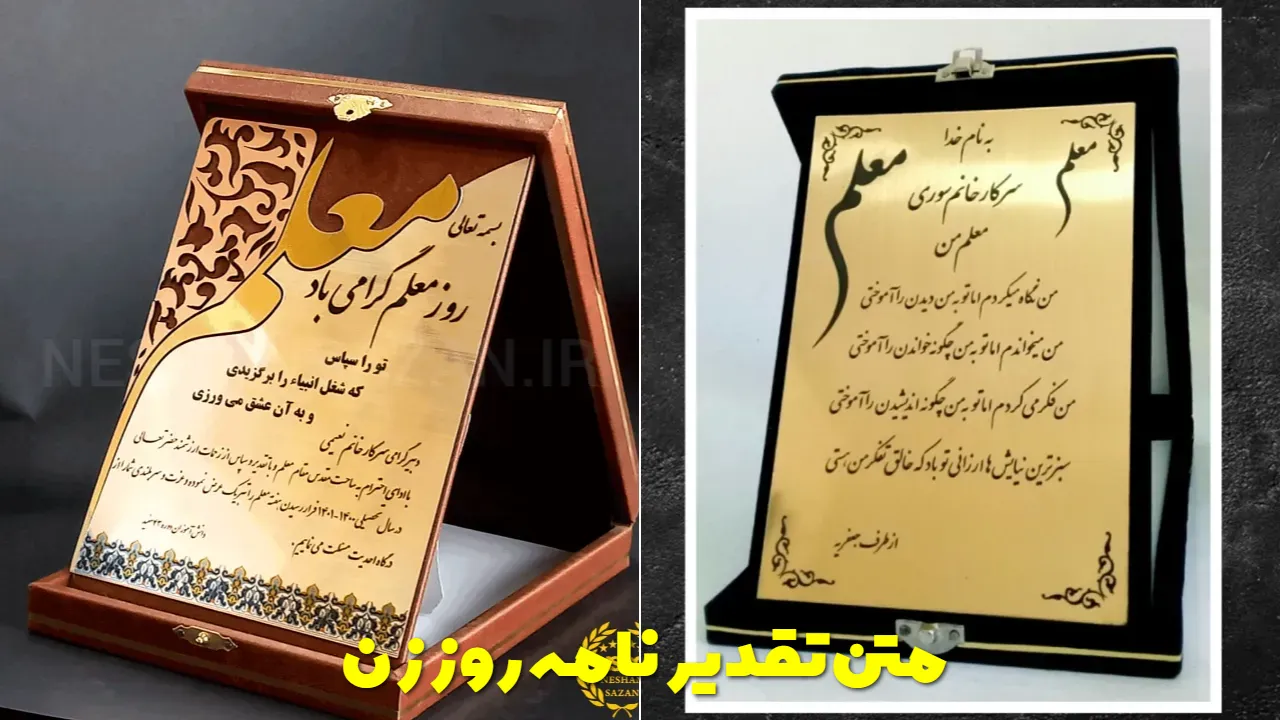 معلم
بسمه تعالی
روز معلم گرامی باد
تو را سپاس
که شغل انبیاء را برگزیدی
و به آن عشق می ورزی
دبیر گرامی سرکار خانم نعیمی
با ادای احترام به ساحت مقدس مقام معلم و با تقدیر و سپاس از زحمات ارزشمند حضرتعالی
در سال تحصیلی ۱۴۰۰-۱۴۰۱ فرا رسیدن هفته معلم را تبریک عرض نموده و عزت و سربلندی شما را از
درگاه احدیت مسئلت می نماییم.
دانش آموزان دوره ۴۳ مفید
NESHANSAZAN.IR
NESHAN
SAZAN
به نام خدا
معلم
معلم
سرکار خانم سوری
معلم من
من نگاه میکردم اما تو به من دیدن را آموختی
من میخواندم اما تو به من چگونه خواندن را آموختی
من فکر می کردم اما تو به من چگونه اندیشیدن را آموختی
سبزترین نیایش ها ارزانی تو باد که خالق تفکر من هستی
از طرف جعفریه
متن تقدیر نامه روز زن